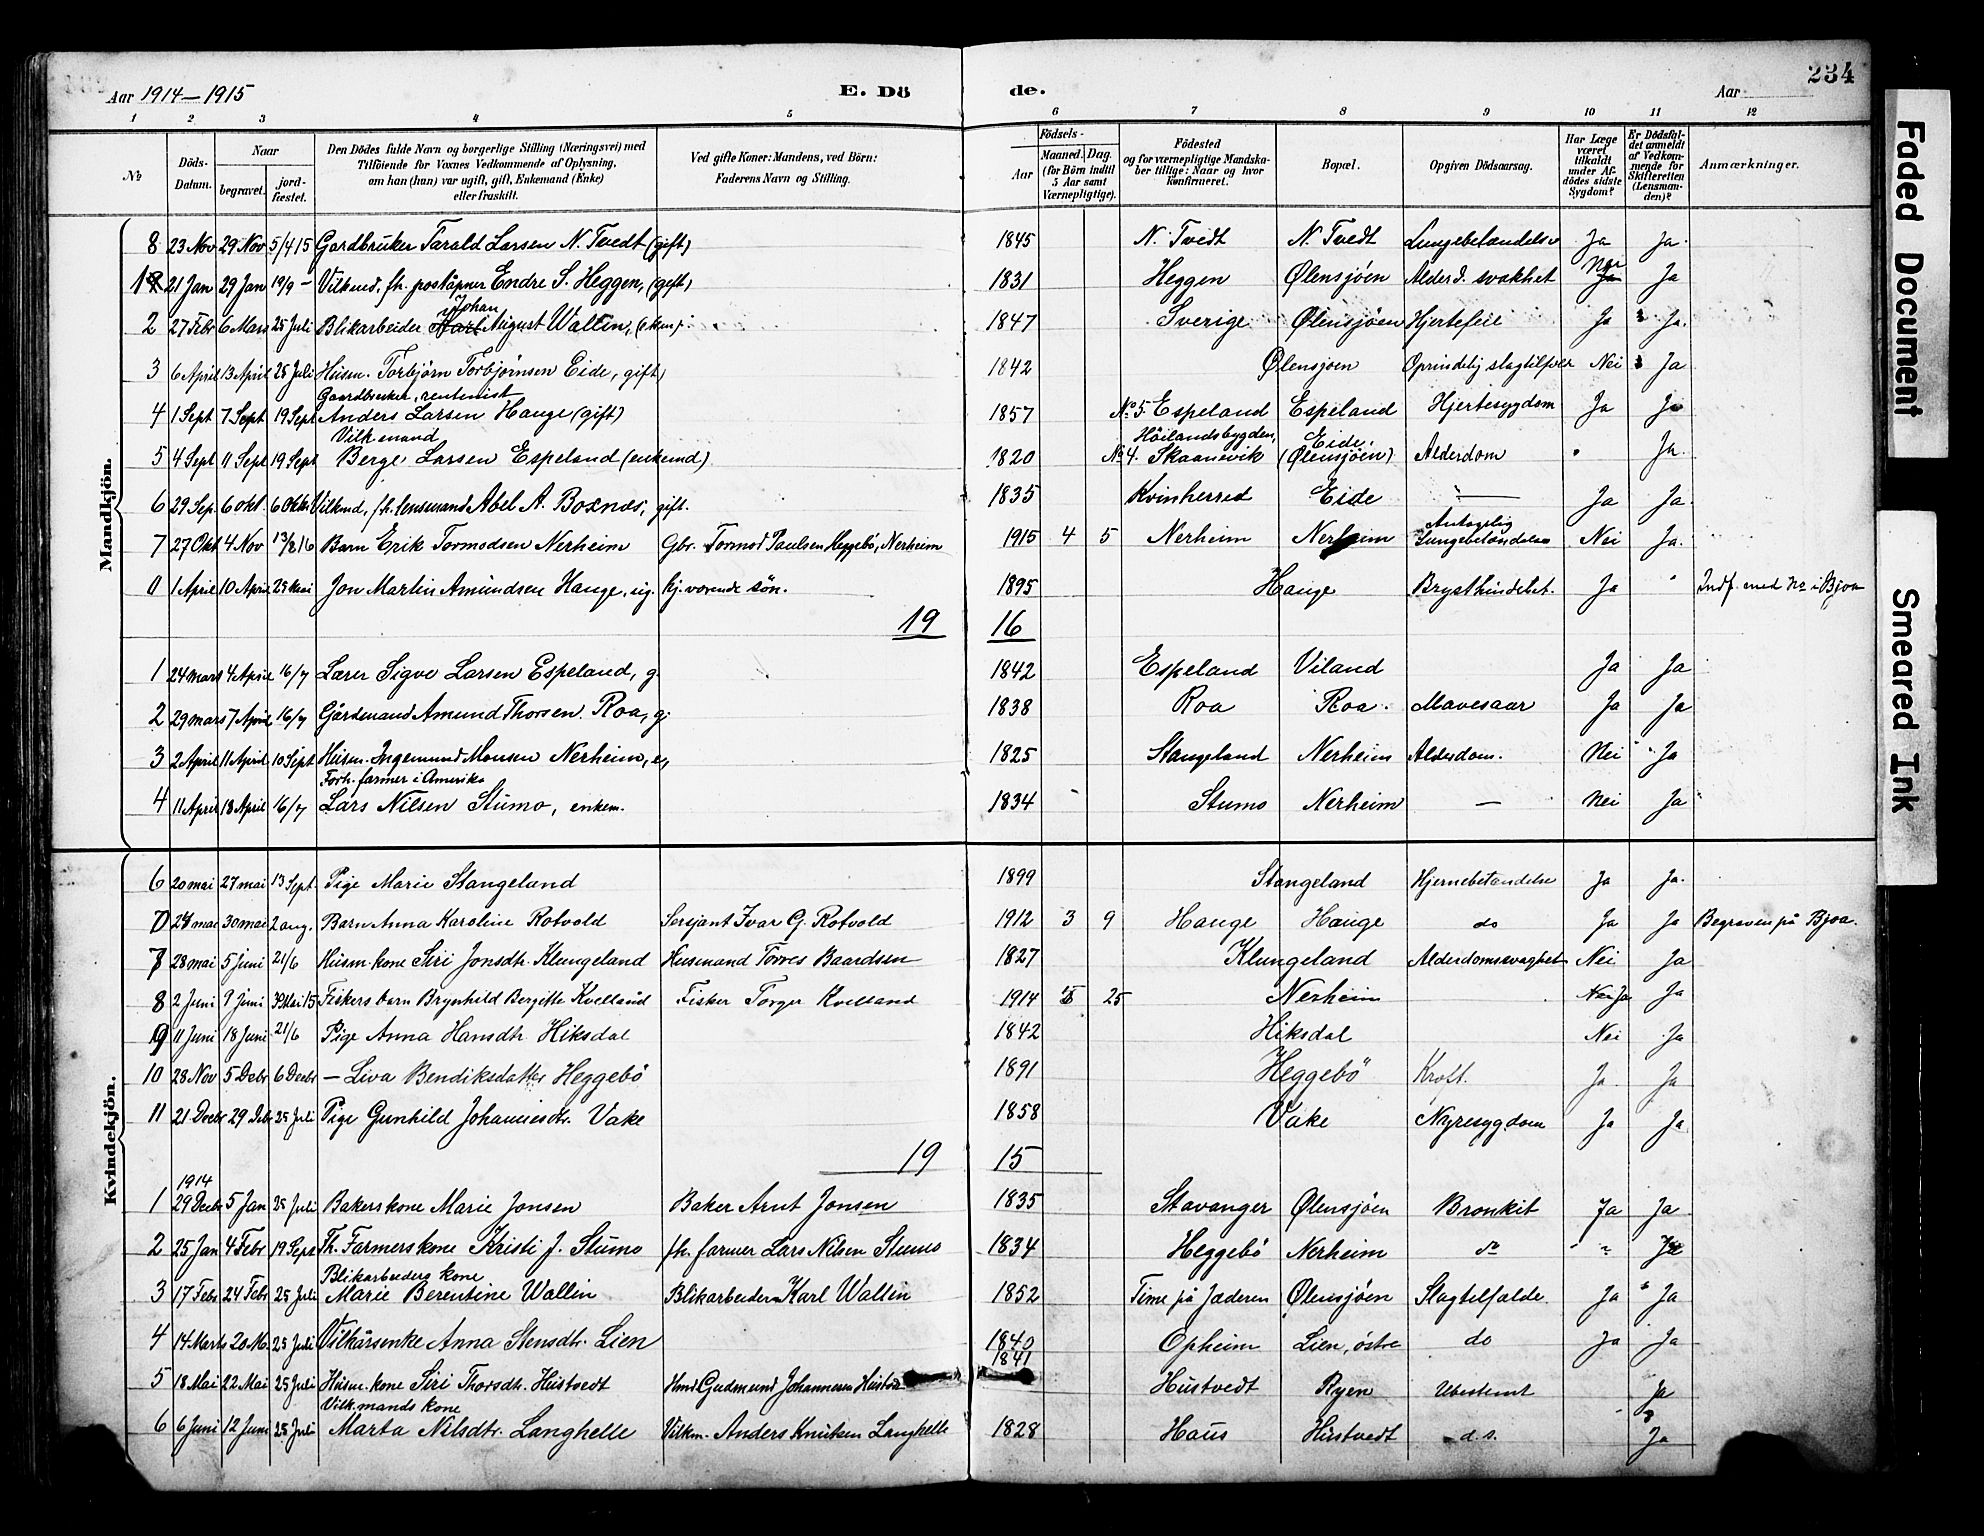 Aar 1914-1915
E. Dö
de.
Aar
234
Faded Document
Smeared Ink
1 2 3 4 5 6 7 8 9 10 11 12
No
Döds-Datum.
Naar
begravet.
jordfæstet.
Den Dödes fulde Navn og borgerlige Stilling (Næringsvei) med
Tilföiende for Voxnes Vedkommende af Oplysning,
om han (hun) var ugift, gift, Enkemand (Enke)
eller fraskilt.
Ved gifte Koner: Mandens, ved Börn:
Faderens Navn og Stilling.
Födsels-
Aar
Maaned. Dag.
(for Börn indtil
5 Aar samt
Værnepligtige).
Födested
og for værnepligtige Mandskaber tillige: Naar og hvor
konfirmeret.
Bopæl.
Opgiven Dödsaarsag.
Har Læge
været
tilkaldt
under Afdödes sidste
Sygdom?
Er Dödsfaldet anmeldt
af Vedkommende for
Skifteretten
(Lensmanden)?
Anmærkninger.
Mandkjön.
8 23 Nov 29 Nov 5/4 15 Gardbruker Tarald Larsen N. Tvedt (gift) 1845 N. Tvedt N. Tvedt Lungebetændelse Ja Ja.
1 21 Jan 29 Jan 19/9 - Vilkmd, fh. poståpner Endre S. Heggen, (gift) 1831 Heggen Ølensjöen Alderd. svakhet Nei Ja
Johan
2 27 Febr 6 Mars 25 Juli Blikarbeider August Wallin, (ekm). 1847 Sverige Ølensjöen Hjertefeil Ja Ja.
3 6 April 13 April 25 Juli Husm. Torbjörn Torbjörnsen Eide, gift) 1842 Ølensjöen Oprindelig slagtilfælde Nei Ja
Gaardbruker, rentenist
4 1 Sept 7 Sept 19 Sept Anders Larsen Hauge (gift) 1857 No 5 Espeland Espeland Hjertesygdom Ja Ja
Vilk. mand Höilandsbygden, Eide,
5 4 Sept 11 Sept 19 Sept Berge Larsen Espeland (enkemd) 1820 No 4. Skaanevik (Ølensjöen) Alderdom " Ja.
6 29 Sep. 6 okt. 6 Okt. Vilkmd, fh. lensmand Abel A. Boxnæs, gift. 1835 Kvinherred Eide — Ja Ja.
7 27 Okt 4 Nov 13/8 16 Barn Erik Tormodsen Nerheim Gbr. Tormod Paulsen Heggebö, Nerheim 1915 4 5 Nerheim Nerheim Antagelig Lungebetændelse Nei Ja.
0 1 April 10 April 25 Mai Jon Martin Amundsen Hauge, ug. hj. værende sön. 1895 Hauge Brysthindebet. Ja " Indf. med No i Bjoa
19 16
1 24 mars 4 April 16/7 Lærer Sigve Larsen Espeland, g. 1842 Espeland Viland Ja Ja
2 29 mars 7 April 16/7 Gårdmand Amund Thorsen Roa, g. 1838 Roa Roa. Mavesaar Ja Ja
3 2 April 11 April 10 Sept Husm. Ingemund Monsen Nerheim, e, 1825 Stangeland Nerheim Alderdom. Nei Ja
Forh. farmer i Amerika
4 11 April 18 April 16/7 Lars Nilsen Stumo, enkem. 1834 Stumo Nerheim — Nei Ja
Kvindekjön.
6 20 mai 27 mai 13 Sept. Pige Marie Stangeland 1899 Stangeland Hjernebetændelse Ja Ja.
0 24 mai 30 mai 2 aug. Barn Anna Karoline Rotvold Sersjant Ivar G. Rotvold 1912 3 9 Hauge Hauge do Ja Ja Begraven på Bjoa.
7 28 mai 5 juni 21/6 Husm. kone Siri Jonsdtr. Klungeland Husmand Torres Baardsen 1827 Klungeland Alderdomssvaghet Nei Ja
8 2 Juni 9 Juni Mai 15 Fiskers barn Brynhild Bergitte Kvelland Fisker Torger Kvelland 1914 25 Nerheim Nei Ja Ja
9 11 Juni 18 Juni 21/6 Pige Anna Hansdtr Hiksdal 1842 Hiksdal Nei Ja
10 28 Nov 5 Debr 6 Decbr — Liva Bendiksdatter Heggebö 1891 Heggebö Kroft. Ja Ja
11 21 Decbr 29 Debr 25 Juli Pige Gunhild Johannesdtr. Vake 1858 Vake Nyresygdom Ja Ja
19 15
1914
1 29 Decbr 5 Jan 25 Juli Bakerskone Marie Jonsen Baker Arnt Jonsen 1835 Stavanger Ølensjöen Bronkit Ja Ja
2 25 Jan 4 Febr 19 Sept Fh. Farmerskone Kristi J. Stumo fh. farmer Lars Nilsen Stumo 1834 Heggebö Nerheim do " Ja
Blikarbeiders kone
3 17 Febr 24 Febr 25 Juli Marie Berentine Wallin Blikarbeider Karl Wallin 1852 Time på Jæderen Ølensjöen Slagtilfælde. Ja Ja
4 14 Marts 20 M. 25 Juli Vilkårsenke Anna Stensdtr. Lien 1840 Opheim Lien, östre do Ja Ja
1841
5 18 Mai 22 Mai 25 Juli Husm. kone Siri Thorsdtr. Hustvedt Hmd Gudmund Johannesen 1841 Hustvedt Ryen Ubestemt Ja
Vilk. mands kone
6 6 Juni 12 Juni 25 Juli Marta Nilsdtr. Langhelle Vilkm. Anders Knutsen Langhelle 1828 Haus Hustvedt d. s. Ja